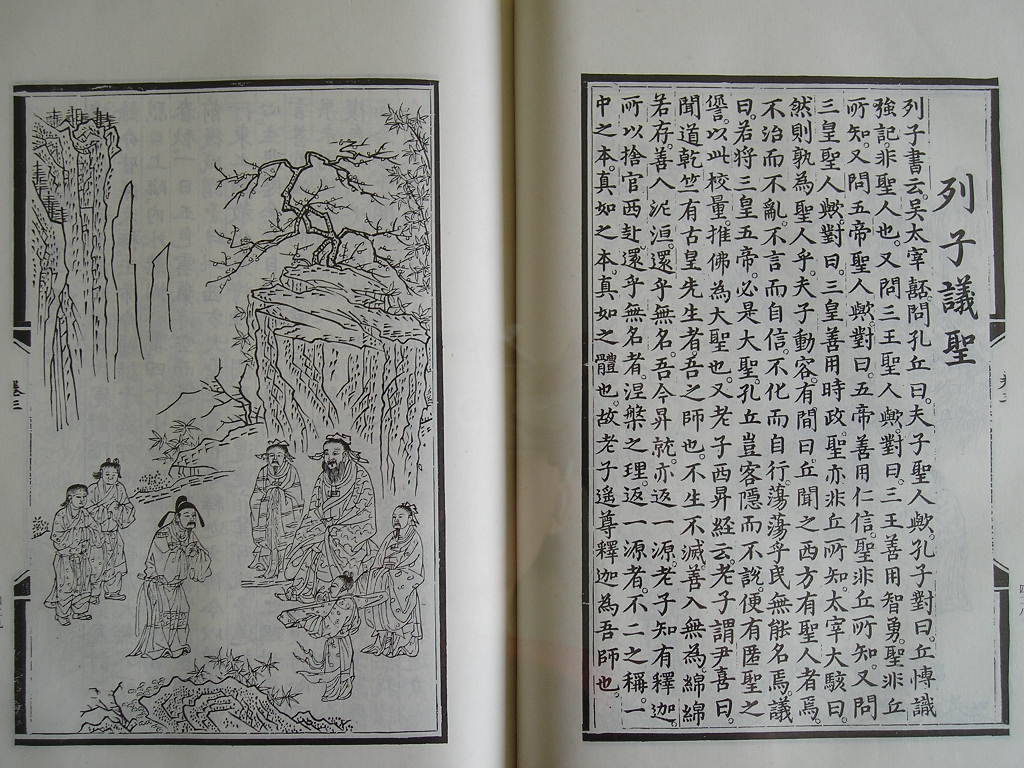 列子議聖
列子書云。吳太宰嚭。問孔丘曰。夫子聖人歟。孔子對曰。丘博識
強記。非聖人也。又問三王聖人歟。對曰。三王善用智勇。聖非丘
所知。又問五帝聖人歟。對曰。五帝善用仁信。聖非丘所知。又問
三皇聖人歟。對曰。三皇善用時政。聖亦非丘所知。太宰大駭曰。
然則孰為聖人乎。夫子動容。有間曰。丘聞之西方有聖人者焉。
不治而不亂。不言而自信。不化而自行。蕩蕩乎民無能名焉。議
曰。若將三皇五帝。必是大聖。孔丘豈容隱而不說。便有匿聖之
愆。以此校量。推佛為大聖也。又老子西昇經云。老子謂尹喜曰。
聞道乾竺。有古皇先生者。吾之師也。不生不滅。善入無為。綿綿
若存。善入泥洹。還乎無名。吾今昇就。亦返一源。老子知有釋迦。
所以捨官西赴。還乎無名者。涅槃之理。返一源者。不二之稱。一
中之本。真如之本。真如之體也。故老子遙尊釋迦為吾師也。
卷三